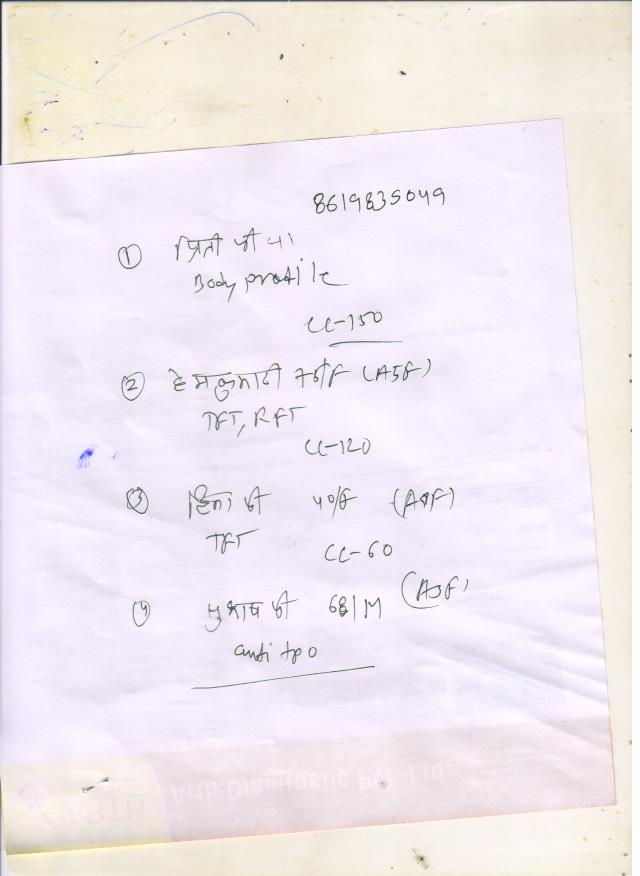 8619835049
① प्रिती जी
Body profile
CC-150
② हेमकुमारी F
TFT, RFT
CC-120
③ जी 40/F
TFT CC-60
④ जी 68/M
anti tpo
Arth Diagnostic Pvt. Ltd.
ARTH